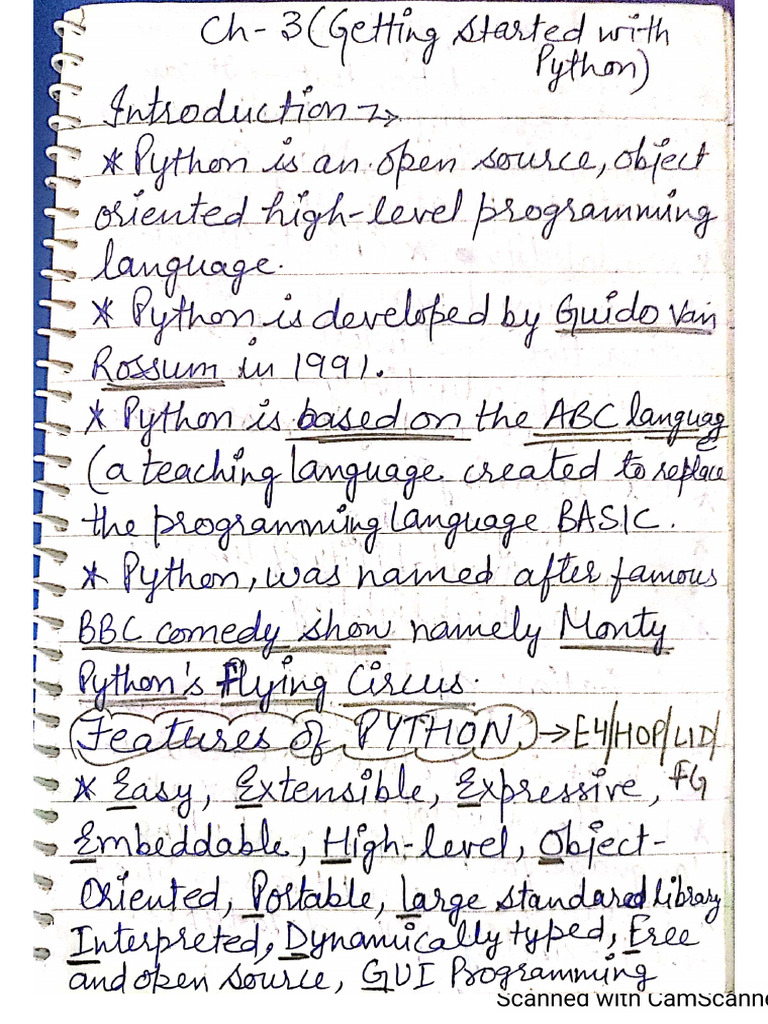 Ch-3 (Getting started with
Python)
Introduction →
* Python is an open source, object
oriented high-level programming
language.
* Python is developed by Guido Van
Rossum in 1991.
* Python is based on the ABC language
(a teaching language created to replace
the programming language BASIC.
* Python, was named after famous
BBC comedy show namely Monty
Python's Flying Circus.
Features of PYTHON → E4/HOP/LID/
FG
* Easy, Extensible, Expressive,
Embeddable, High-level, Object-
Oriented, Portable, large standared library
Interpreted, Dynamically typed, Free
and open source, GUI Programming
Scanned with CamScanne